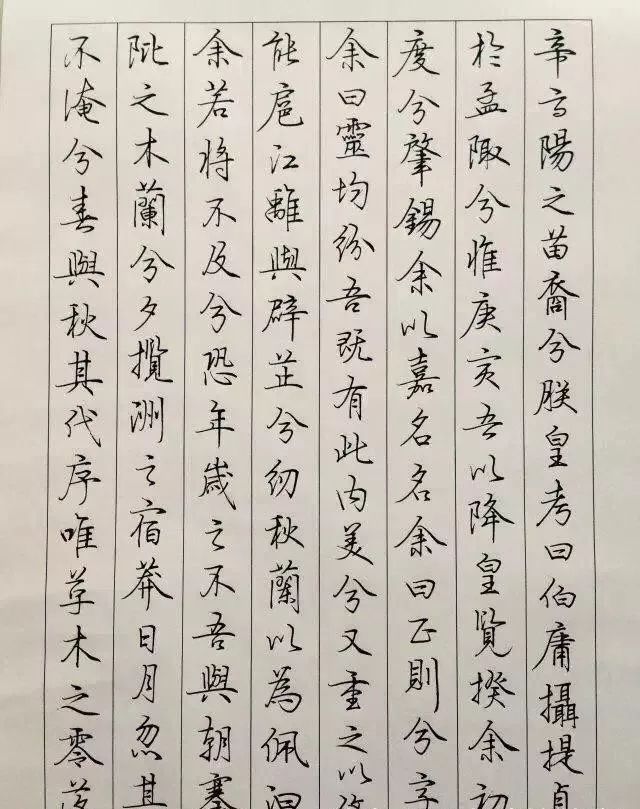 帝高陽之苗裔兮朕皇考曰伯庸攝提貞
於孟陬兮惟庚寅吾以降皇覽揆余初
度兮肇錫余以嘉名名余曰正則兮字
余曰靈均紛吾既有此內美兮又重之以脩
能扈江離與辟芷兮紉秋蘭以為佩汩
余若將不及兮恐年歲之不吾與朝搴
阰之木蘭兮夕攬洲之宿莽日月忽其
不淹兮春與秋其代序唯草木之零落